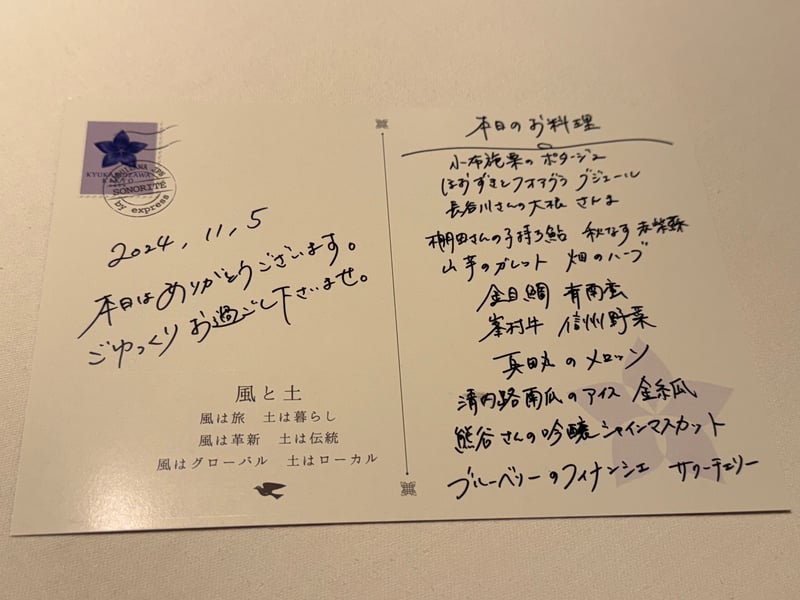 KYUKARUIZAWA
KIKYO
SONORITÉ
by express
2024, 11, 5
本日はありがとうございます。
ごゆっくりお過ごし下さいませ。
風と土
風は旅 土は暮らし
風は革新 土は伝統
風はグローバル 土はローカル
本日のお料理
小布施栗のポタージュ
ほおずきとフォアグラ グジェール
長谷川さんの大根 さんま
棚田さんの子持ち鮎 秋なす 赤紫蘇
山芋のガレット 畑のハーブ
金目鯛 有南蛮
峯村牛 信州野菜
真田丸のメロン
清内路南瓜のアイス 金糸瓜
熊谷さんの吟醸シャインマスカット
ブルーベリーのフィナンシェ サワーチェリー